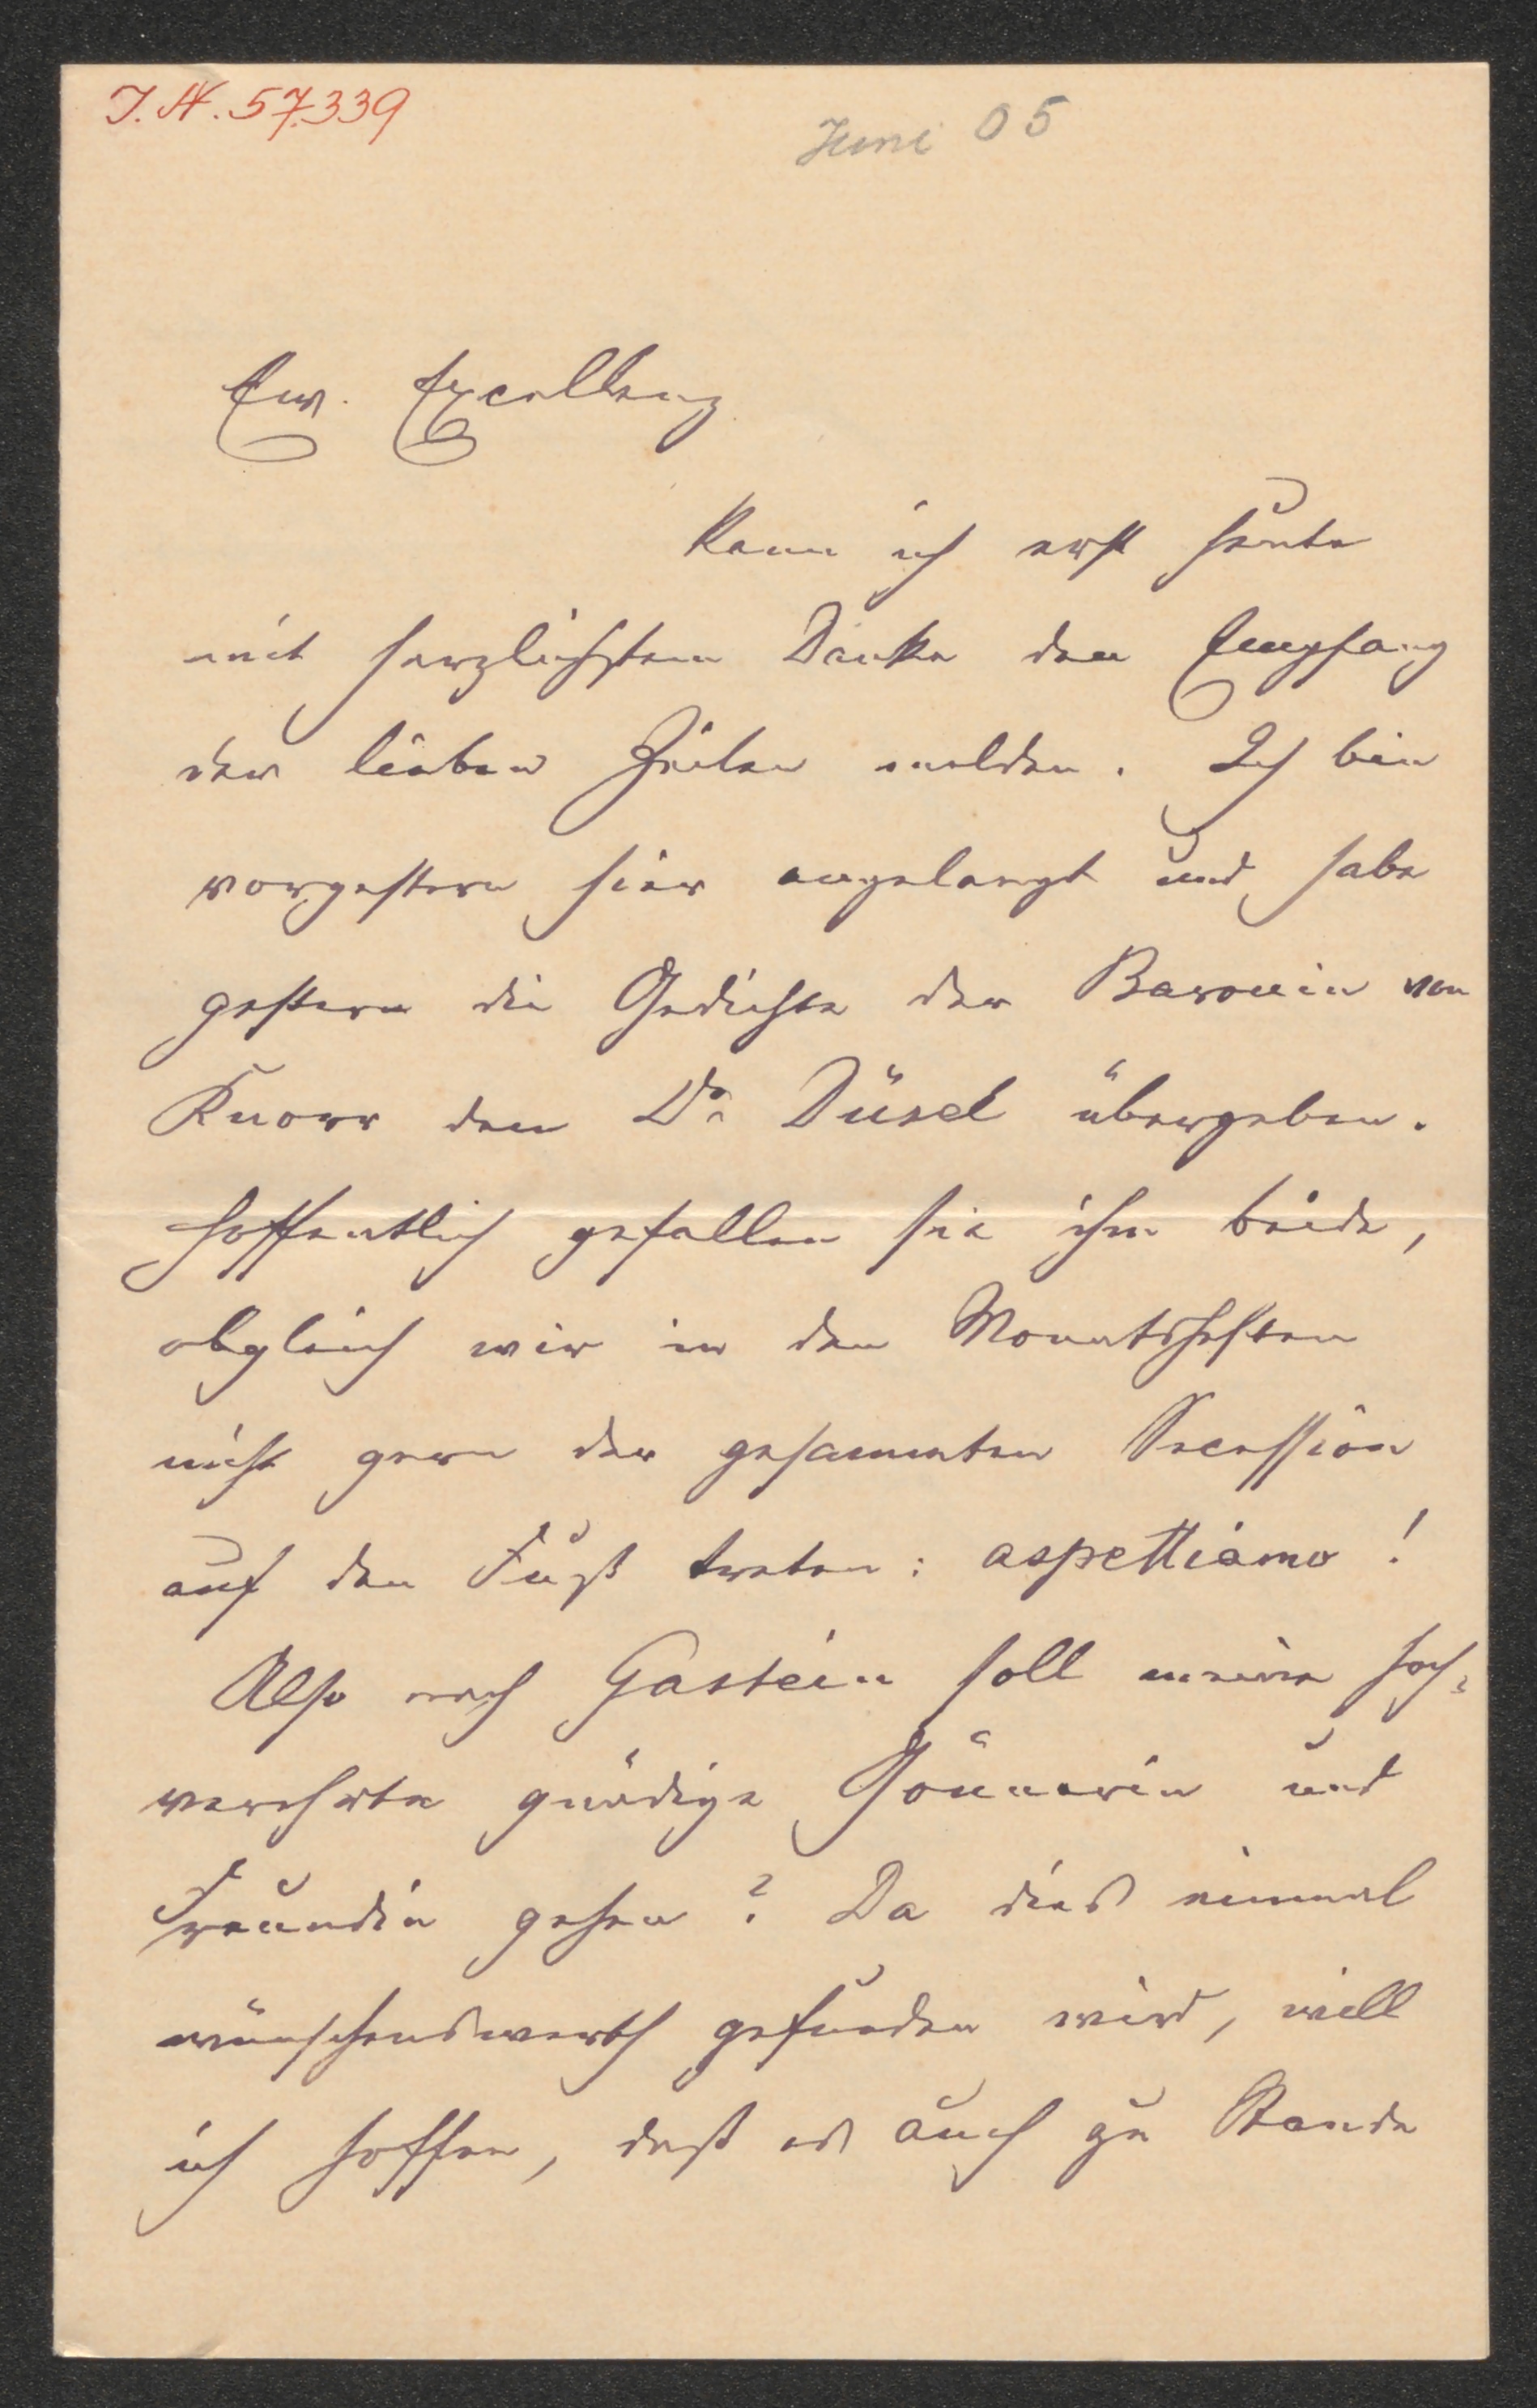 J. N. 57.339
Juni 05
Ew. Excellenz
kann ich erst heute
mit herzlichstem Danke den Empfang
der lieben Zeilen melden. Ich bin
vorgestern hier angelangt und habe
gestern die Gedichte der Baronin von
Knorr dem Dr. Düsel übergeben.
Hoffentlich gefallen sie ihm beide,
obgleich wir in den Monatsheften
nicht gern der gesammten Secession
auf den Fuß treten: aspettiamo!
Also nach Gastein soll meine hoch=
verehrte gnädige Gönnerin und
Freundin gehen? Da dies einmal
wünschenswerth gefunden wird, will
ich hoffen, daß es auch zu Stande